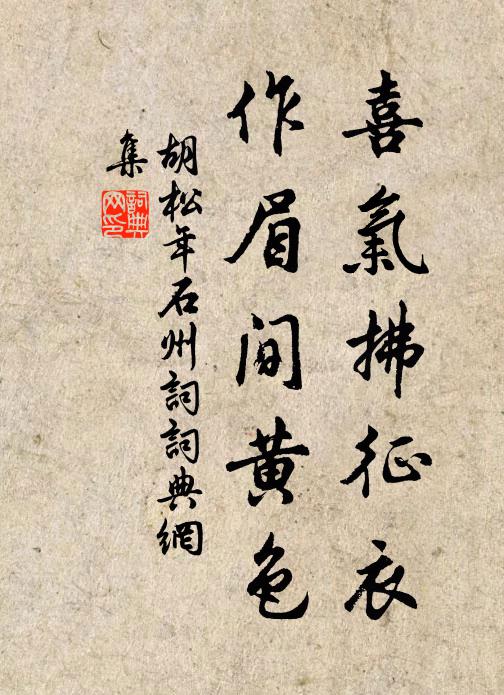 喜氣拂征衣
作眉間黃色
胡松年石州詞詞典網
集
詞典網印